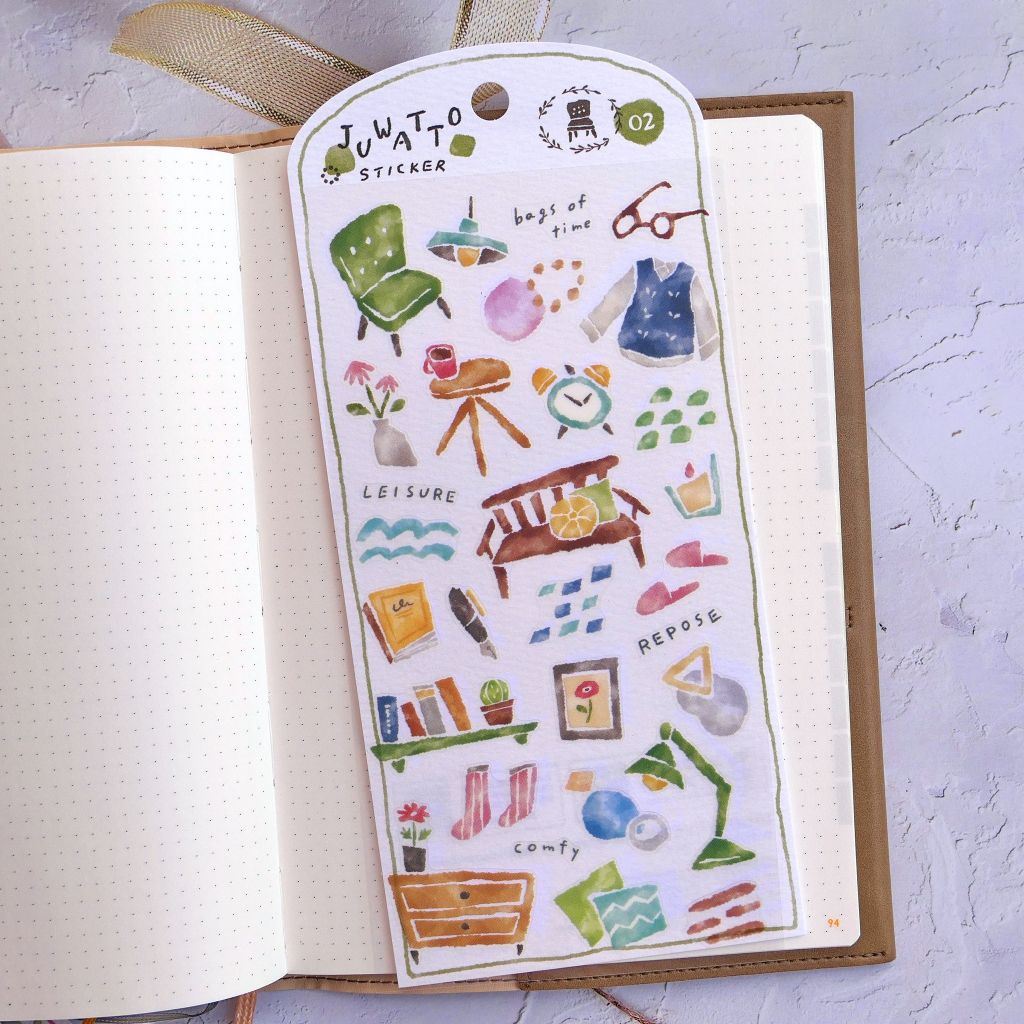 JUWATTO
STICKER
02
bags of
time
LEISURE
REPOSE
comfy
94